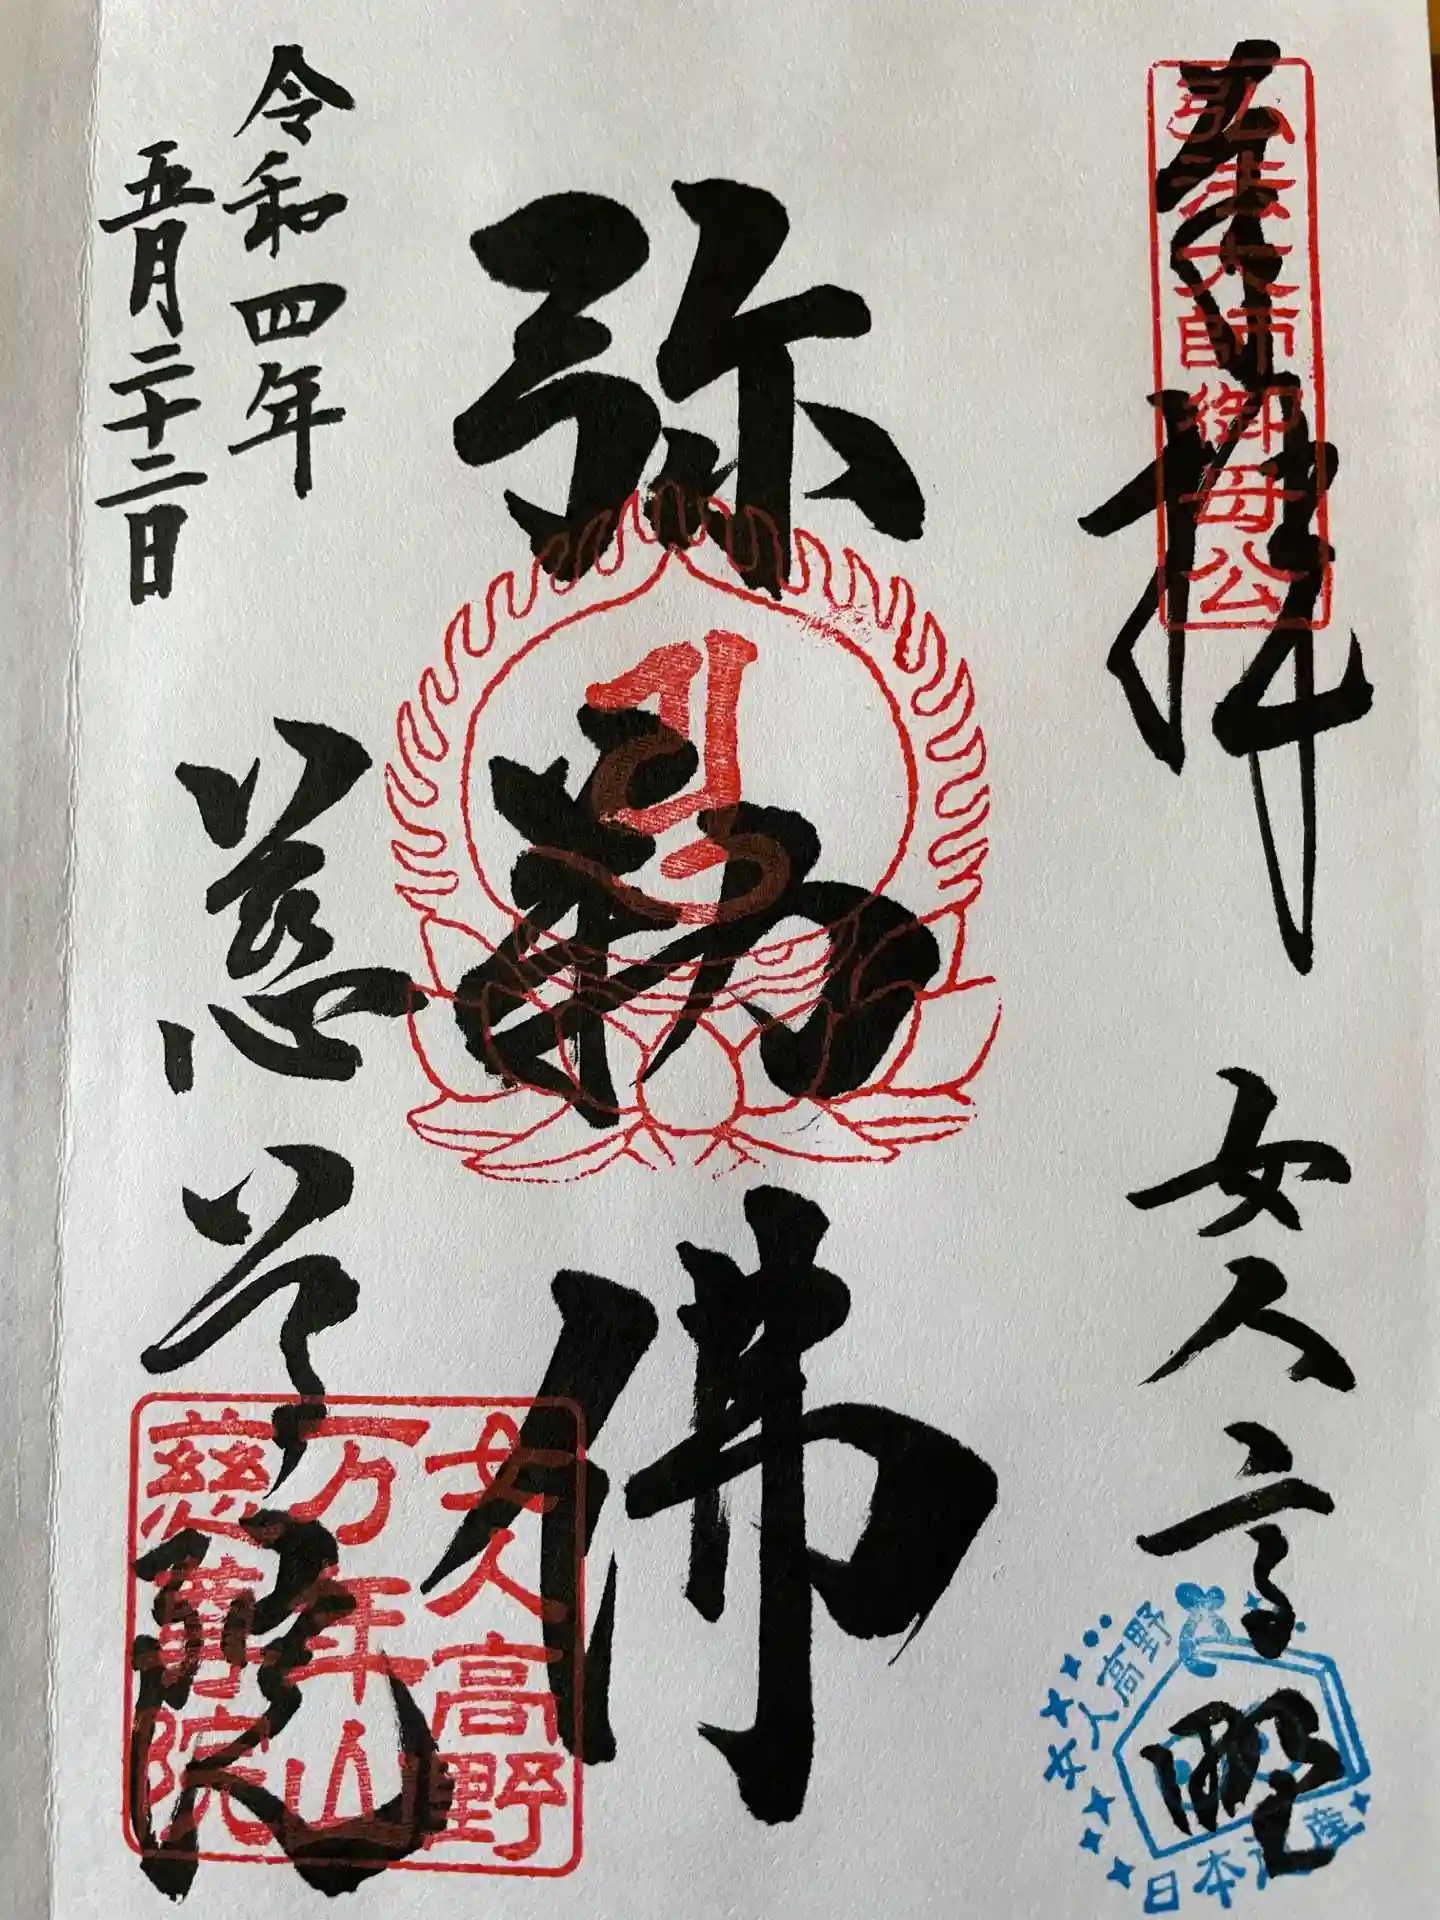 奉拝
女人高野
弘法大師御母公
弥勒佛
令和四年
五月二十二日
慈尊院
女人高野
万年山
慈尊院
女人高野
日本遺産